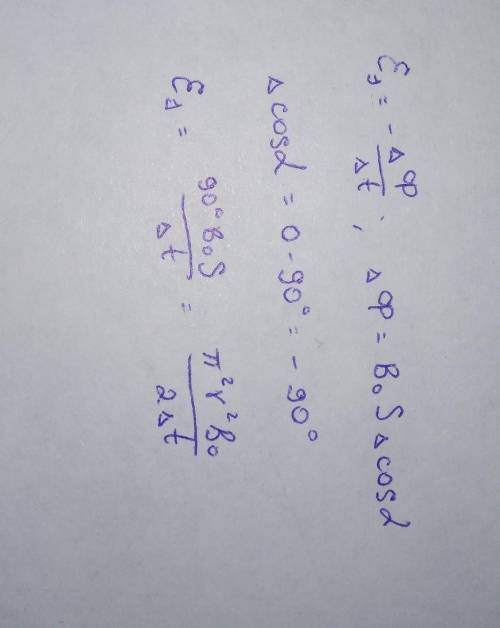 ℰᵢ = - ΔΦ/Δt ; ΔΦ = B₀ S Δcosα
Δcosα = 0 - 90° = - 90°
ℰᵢ = 90° B₀ S/Δt = π² r² B₀/2Δt